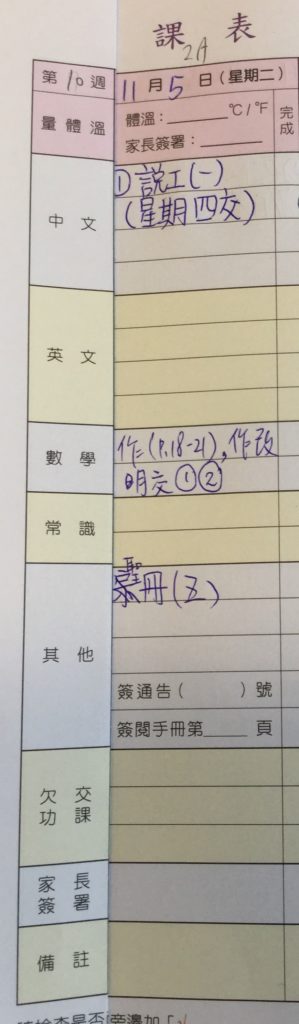 課表
2A
第10週
11月5日(星期二)
量體溫
體溫:______°C/°F
家長簽署:______
完成
中文
①說工(一)
(星期四交)
英文
數學
作二(P.18-21),作改
明交①②
常識
其他
聖冊(五)
簽通告( )號
簽閱手冊第____頁
欠交功課
家長簽署
備註